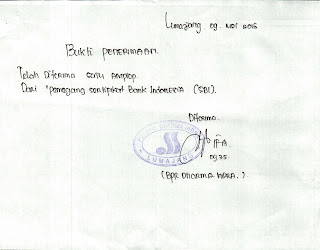 Lumajang 09. Mei 2016
Bukti penerimaan.
Telah Diterima satu Amplop.
Dari "pemegang sertipikat Bank Indonesia (SBI).
Diterima.
IFA
09.25.
LUMAJANG
(BPR DHARMA INDRA.)